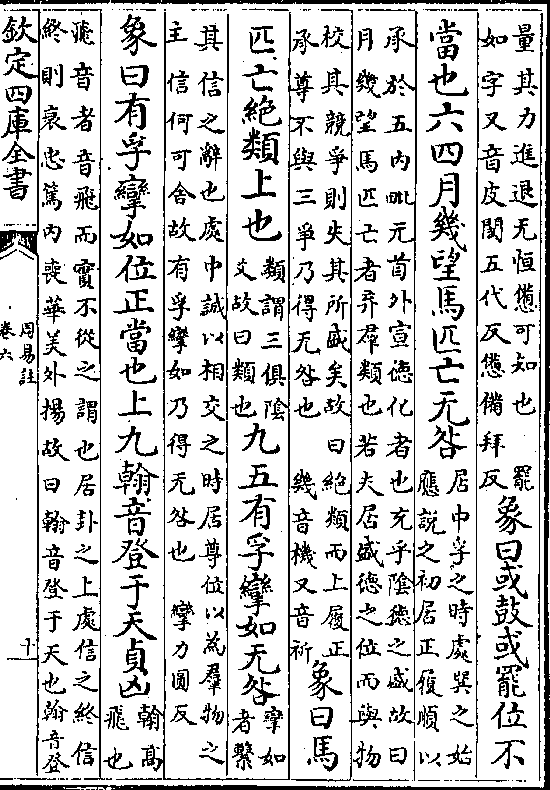 量其力進退无恒憊可知也　罷
如字又音皮閡五代反憊備拜反
象曰或鼓或罷位不
當也六四月幾望馬匹亡无咎
居中孚之時處巽之始
應說之初居正履順以
承於五内毗元首外宣徳化者也充乎陰徳之盛故曰
月幾望馬匹亡者弃羣類也若夫居盛徳之位而與物
校其競爭則失其所盛矣故曰絶類而上履正
承尊不與三爭乃得无咎也　幾音機又音祈
象曰馬
匹亡絶類上也
類謂三俱陰
爻故曰類也
九五有孚攣如无咎
攣如
者繫
其信之辭也處中誠以相交之時居尊位以為羣物之
主信何可舎故有孚攣如乃得无咎也　攣力圓反
象曰有孚攣如位正當也上九翰音登于天貞凶
翰高
飛也
飛音者音飛而實不從之謂也居卦之上處信之終信
終則衰忠篤内喪華美外揚故曰翰音登于天也翰音登
欽定四庫全書
周易註
卷六
十